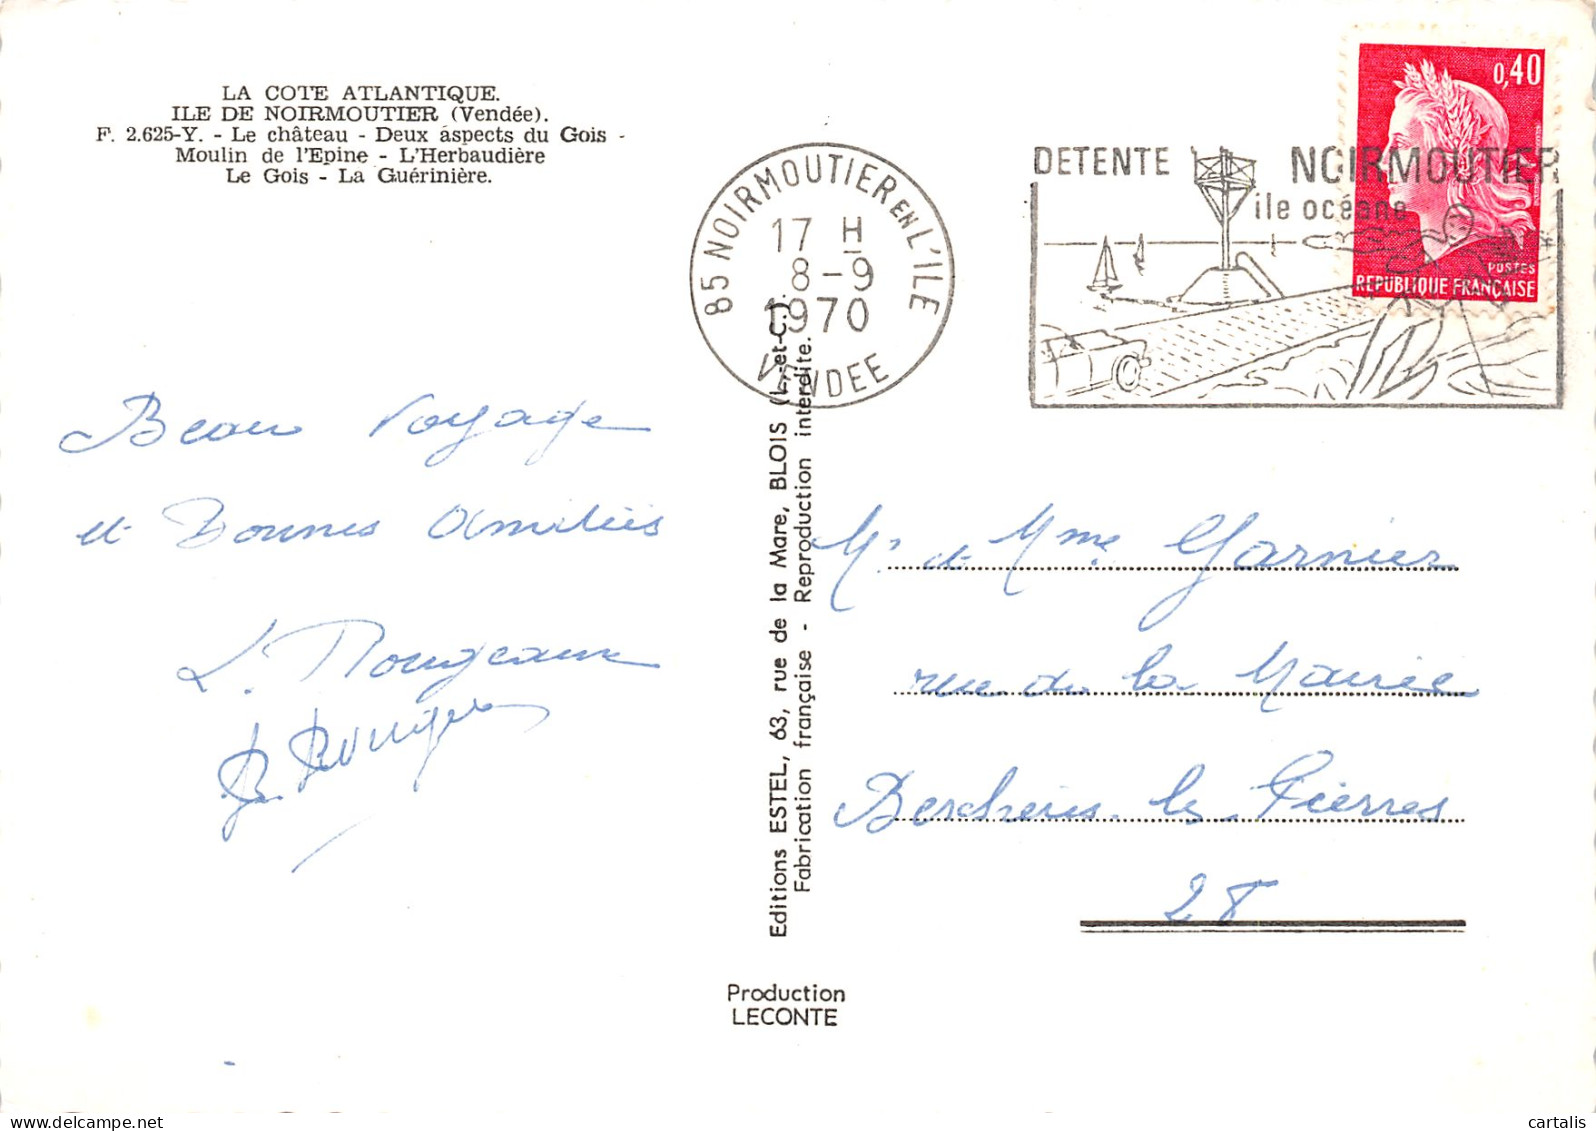 LA COTE ATLANTIQUE.
ILE DE NOIRMOUTIER (Vendée).
F. 2.625-Y. - Le château - Deux aspects du Gois -
Moulin de l'Epine - L'Herbaudière
Le Gois - La Guérinière.
85 NOIRMOUTIER EN L'ILE
17 H
8-9
1970
VENDEE
DETENTE NOIRMOUTIER
île océane
0,40
POSTES
REPUBLIQUE FRANÇAISE
Beau Voyage
et Bonnes Amitiés
L. Rougeaux
Editions ESTEL, 63, rue de la Mare, BLOIS (L.-et-C.).
Fabrication française - Reproduction interdite.
Mr et Mme Garnier
rue de la Mairie
Berchères les Pierres
28
Production
LECONTE
cartalis